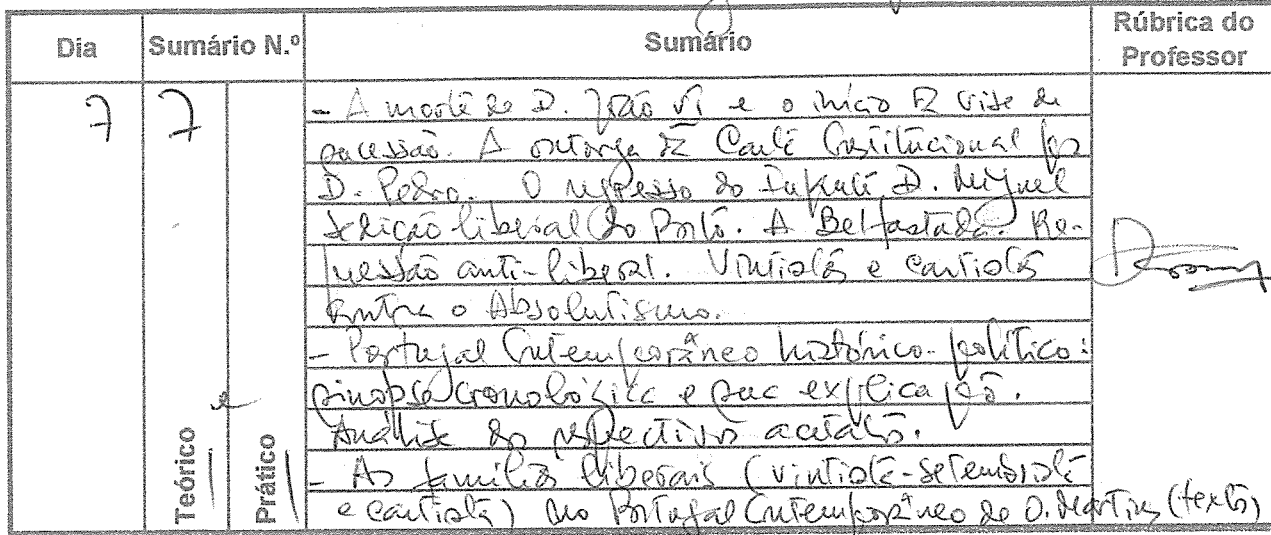 Dia Sumário N.º Sumário Rúbrica do Professor
7 7
- A morte de D. João VI e o início da crise de
sucessão. A outorga da Carta Constitucional por
D. Pedro. O regresso do Infante D. Miguel
Sedição liberal do Porto. A Belfastada. Re-
pressão anti-liberal. Vintistas e cartistas
contra o Absolutismo.
- Portugal Contemporâneo histórico-político:
sinopse cronológica e sua explicação.
Análise do respectivo acetato.
- As famílias liberais (vintista-setembrista
e cartista) no Portugal Contemporâneo de O. Martins (texto)
Teórico e Prático